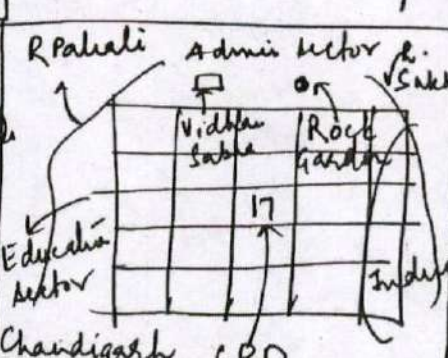 R Patiali Admin sector R.
Sukh
Vidhan Rock
Sabha Garden
17
Education
sector
Indus
Chandigarh CBD